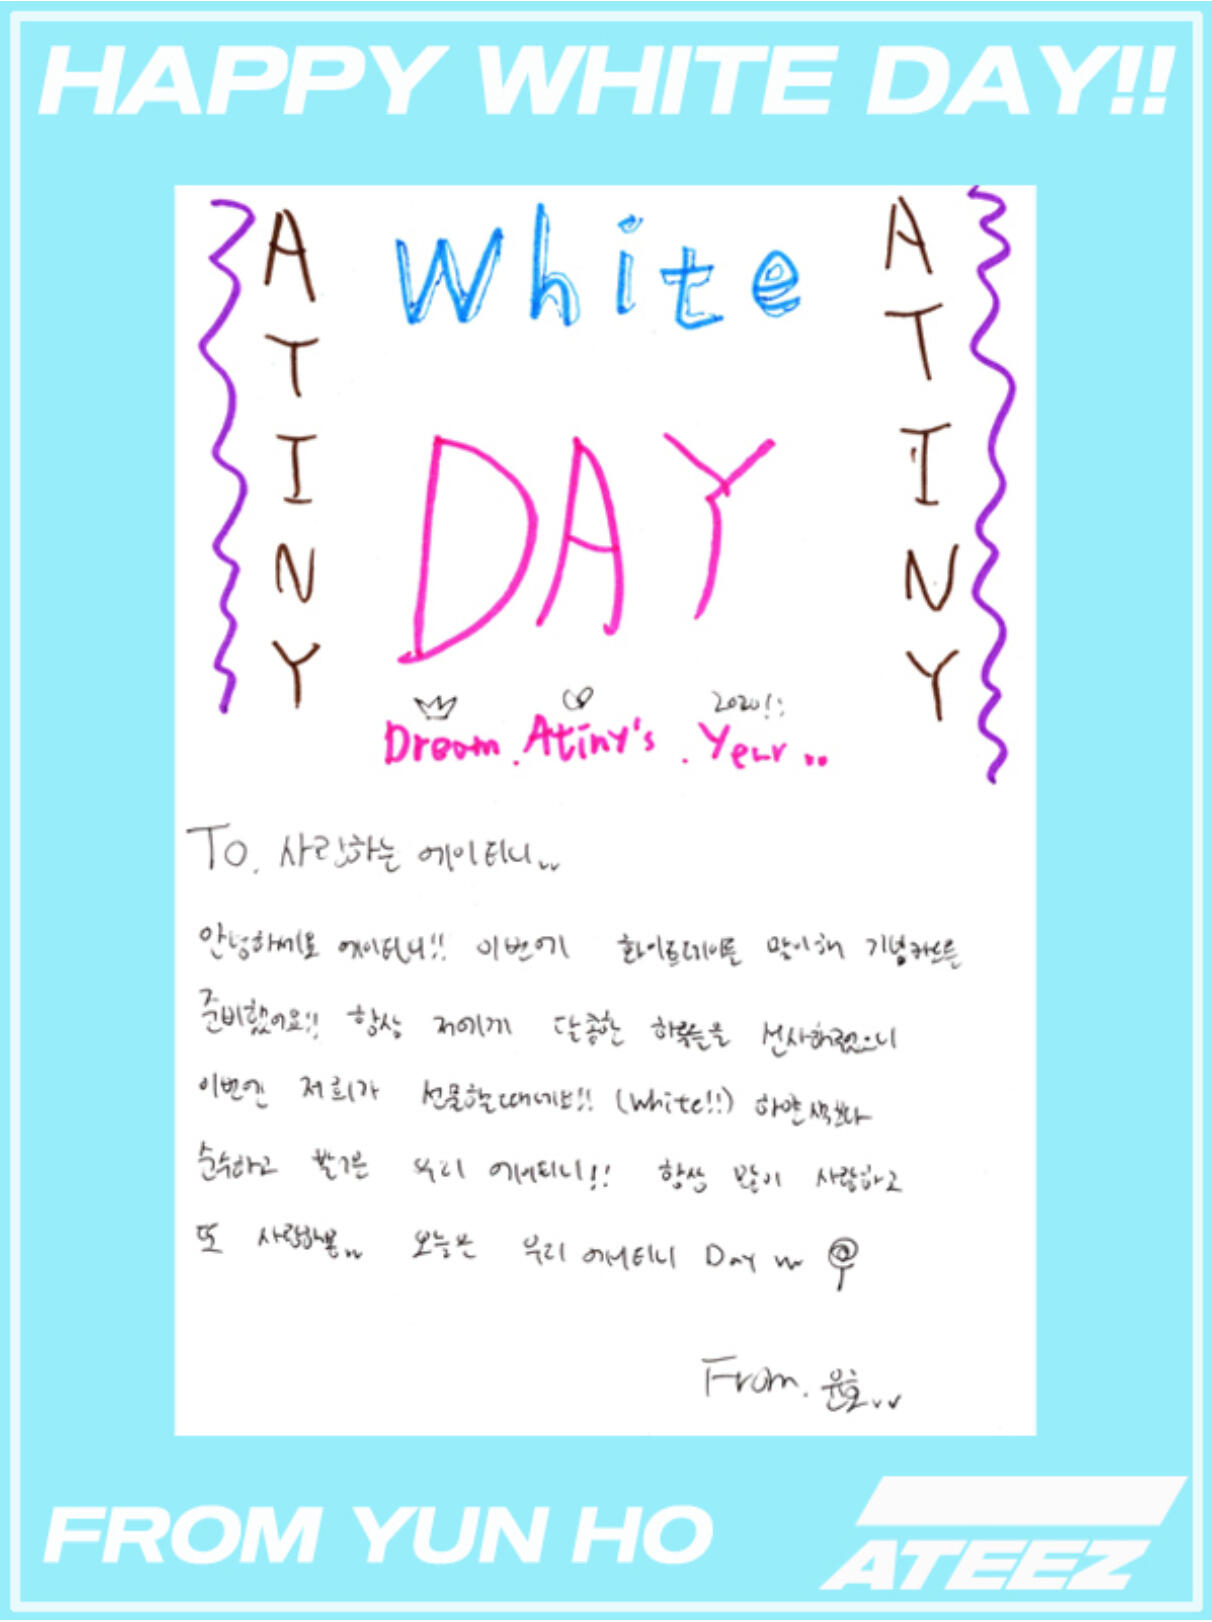 HAPPY WHITE DAY!!
ATINY
White
ATINY
DAY
2020!!
Dream. Atiny's. Year..
To. 사랑하는 에이티니..
안녕하세요 에이티니!! 이번에 화이트데이를 맞이해 기념카드를
준비했어요!! 항상 저에게 달콤한 하루들을 선사해줬으니
이번엔 저희가 선물할때네요!! (White!!) 하얀색보다
순수하고 밝은 우리 에이티니!! 항상 많이 사랑하고
또 사랑해용.. 오늘은 우리 에이티니 Day
From. 윤호..
FROM YUN HO
ATEEZ